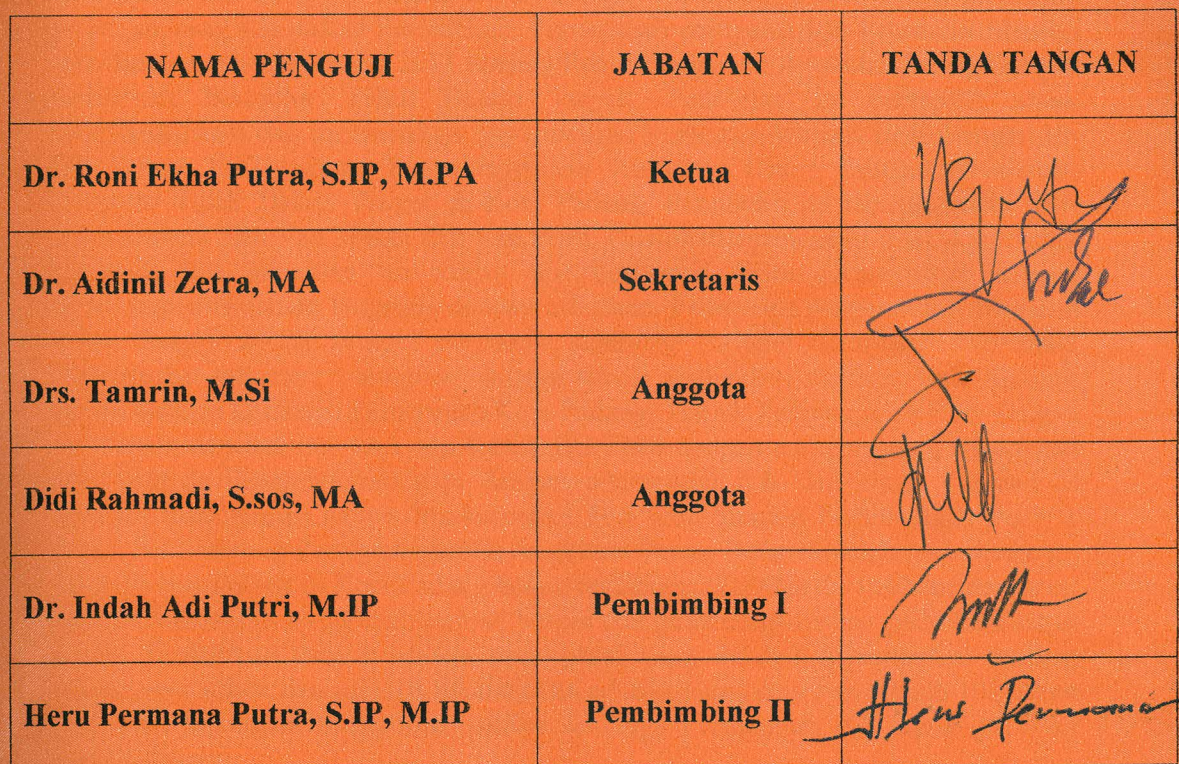 NAMA PENGUJI JABATAN TANDA TANGAN
Dr. Roni Ekha Putra, S.IP, M.PA Ketua
Dr. Aidinil Zetra, MA Sekretaris
Drs. Tamrin, M.Si Anggota
Didi Rahmadi, S.sos, MA Anggota
Dr. Indah Adi Putri, M.IP Pembimbing I
Heru Permana Putra, S.IP, M.IP Pembimbing II